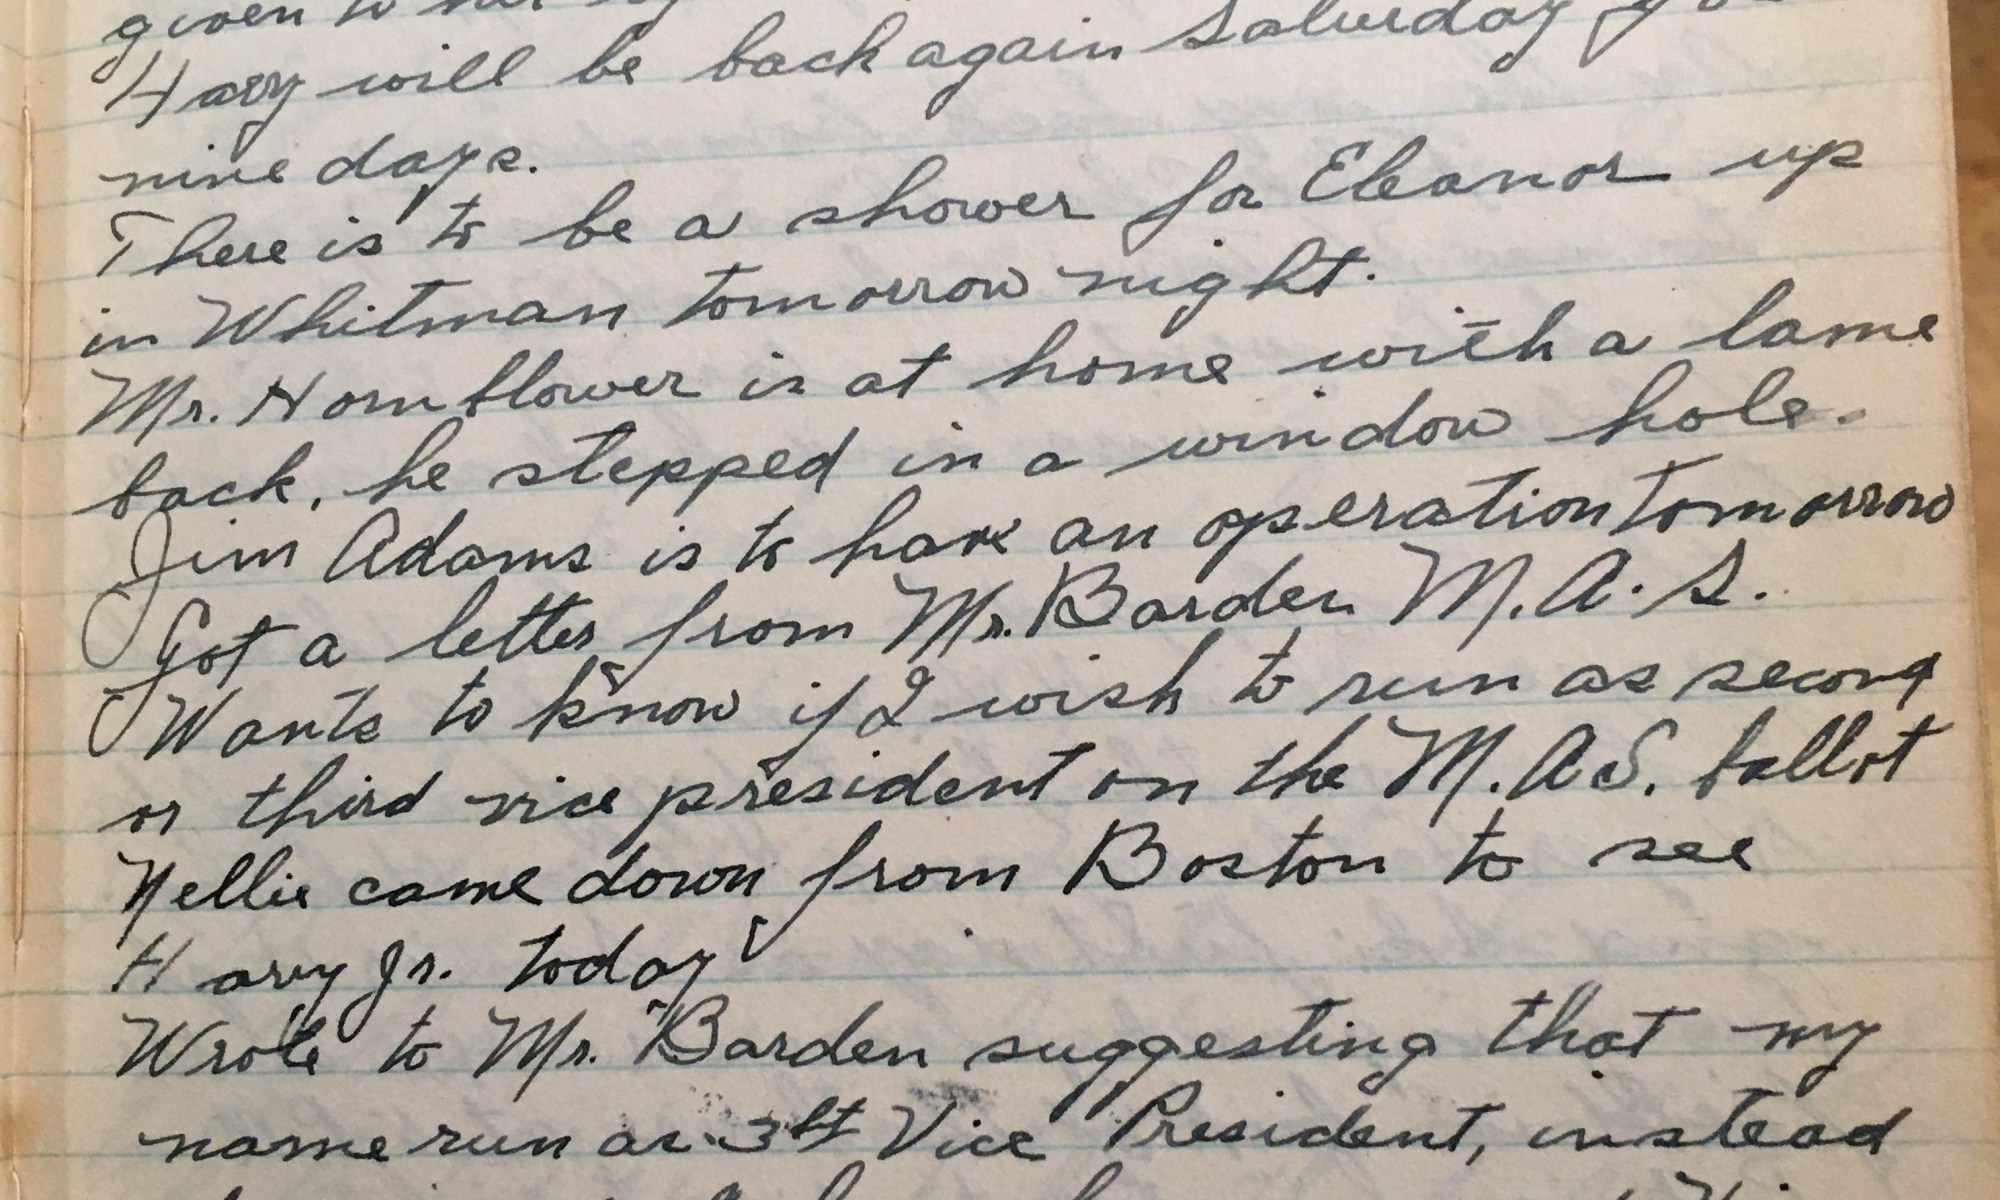 given to
Harry will be back again Saturday for
nine days.
There is to be a shower for Eleanor up
in Whitman tomorrow night.
Mr. Hornblower is at home with a lame
back, he stepped in a window hole.
Jim Adams is to have an operation tomorrow
Got a letter from Mr. Barden M.A.S.
Wants to know if I wish to run as second
or third vice president on the M.A.S. ballot
Nellie came down from Boston to see
Harry Jr. today
Wrote to Mr. Barden suggesting that my
name run as Vice President, instead